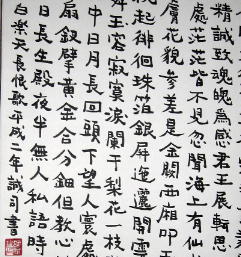 精誠致魂魄為感君王展轉思
處茫茫皆不見忽聞海上有仙
膚花貌參差是金闕西廂叩玉
枕起徘徊珠箔銀屏邐迤開雲
舞玉容寂寞淚闌干梨花一枝
中日月長回頭下望人寰處
扇釵擘黃金合分鈿但教心
日長生殿夜半無人私語時
白樂天長恨歌平成二年誠司書